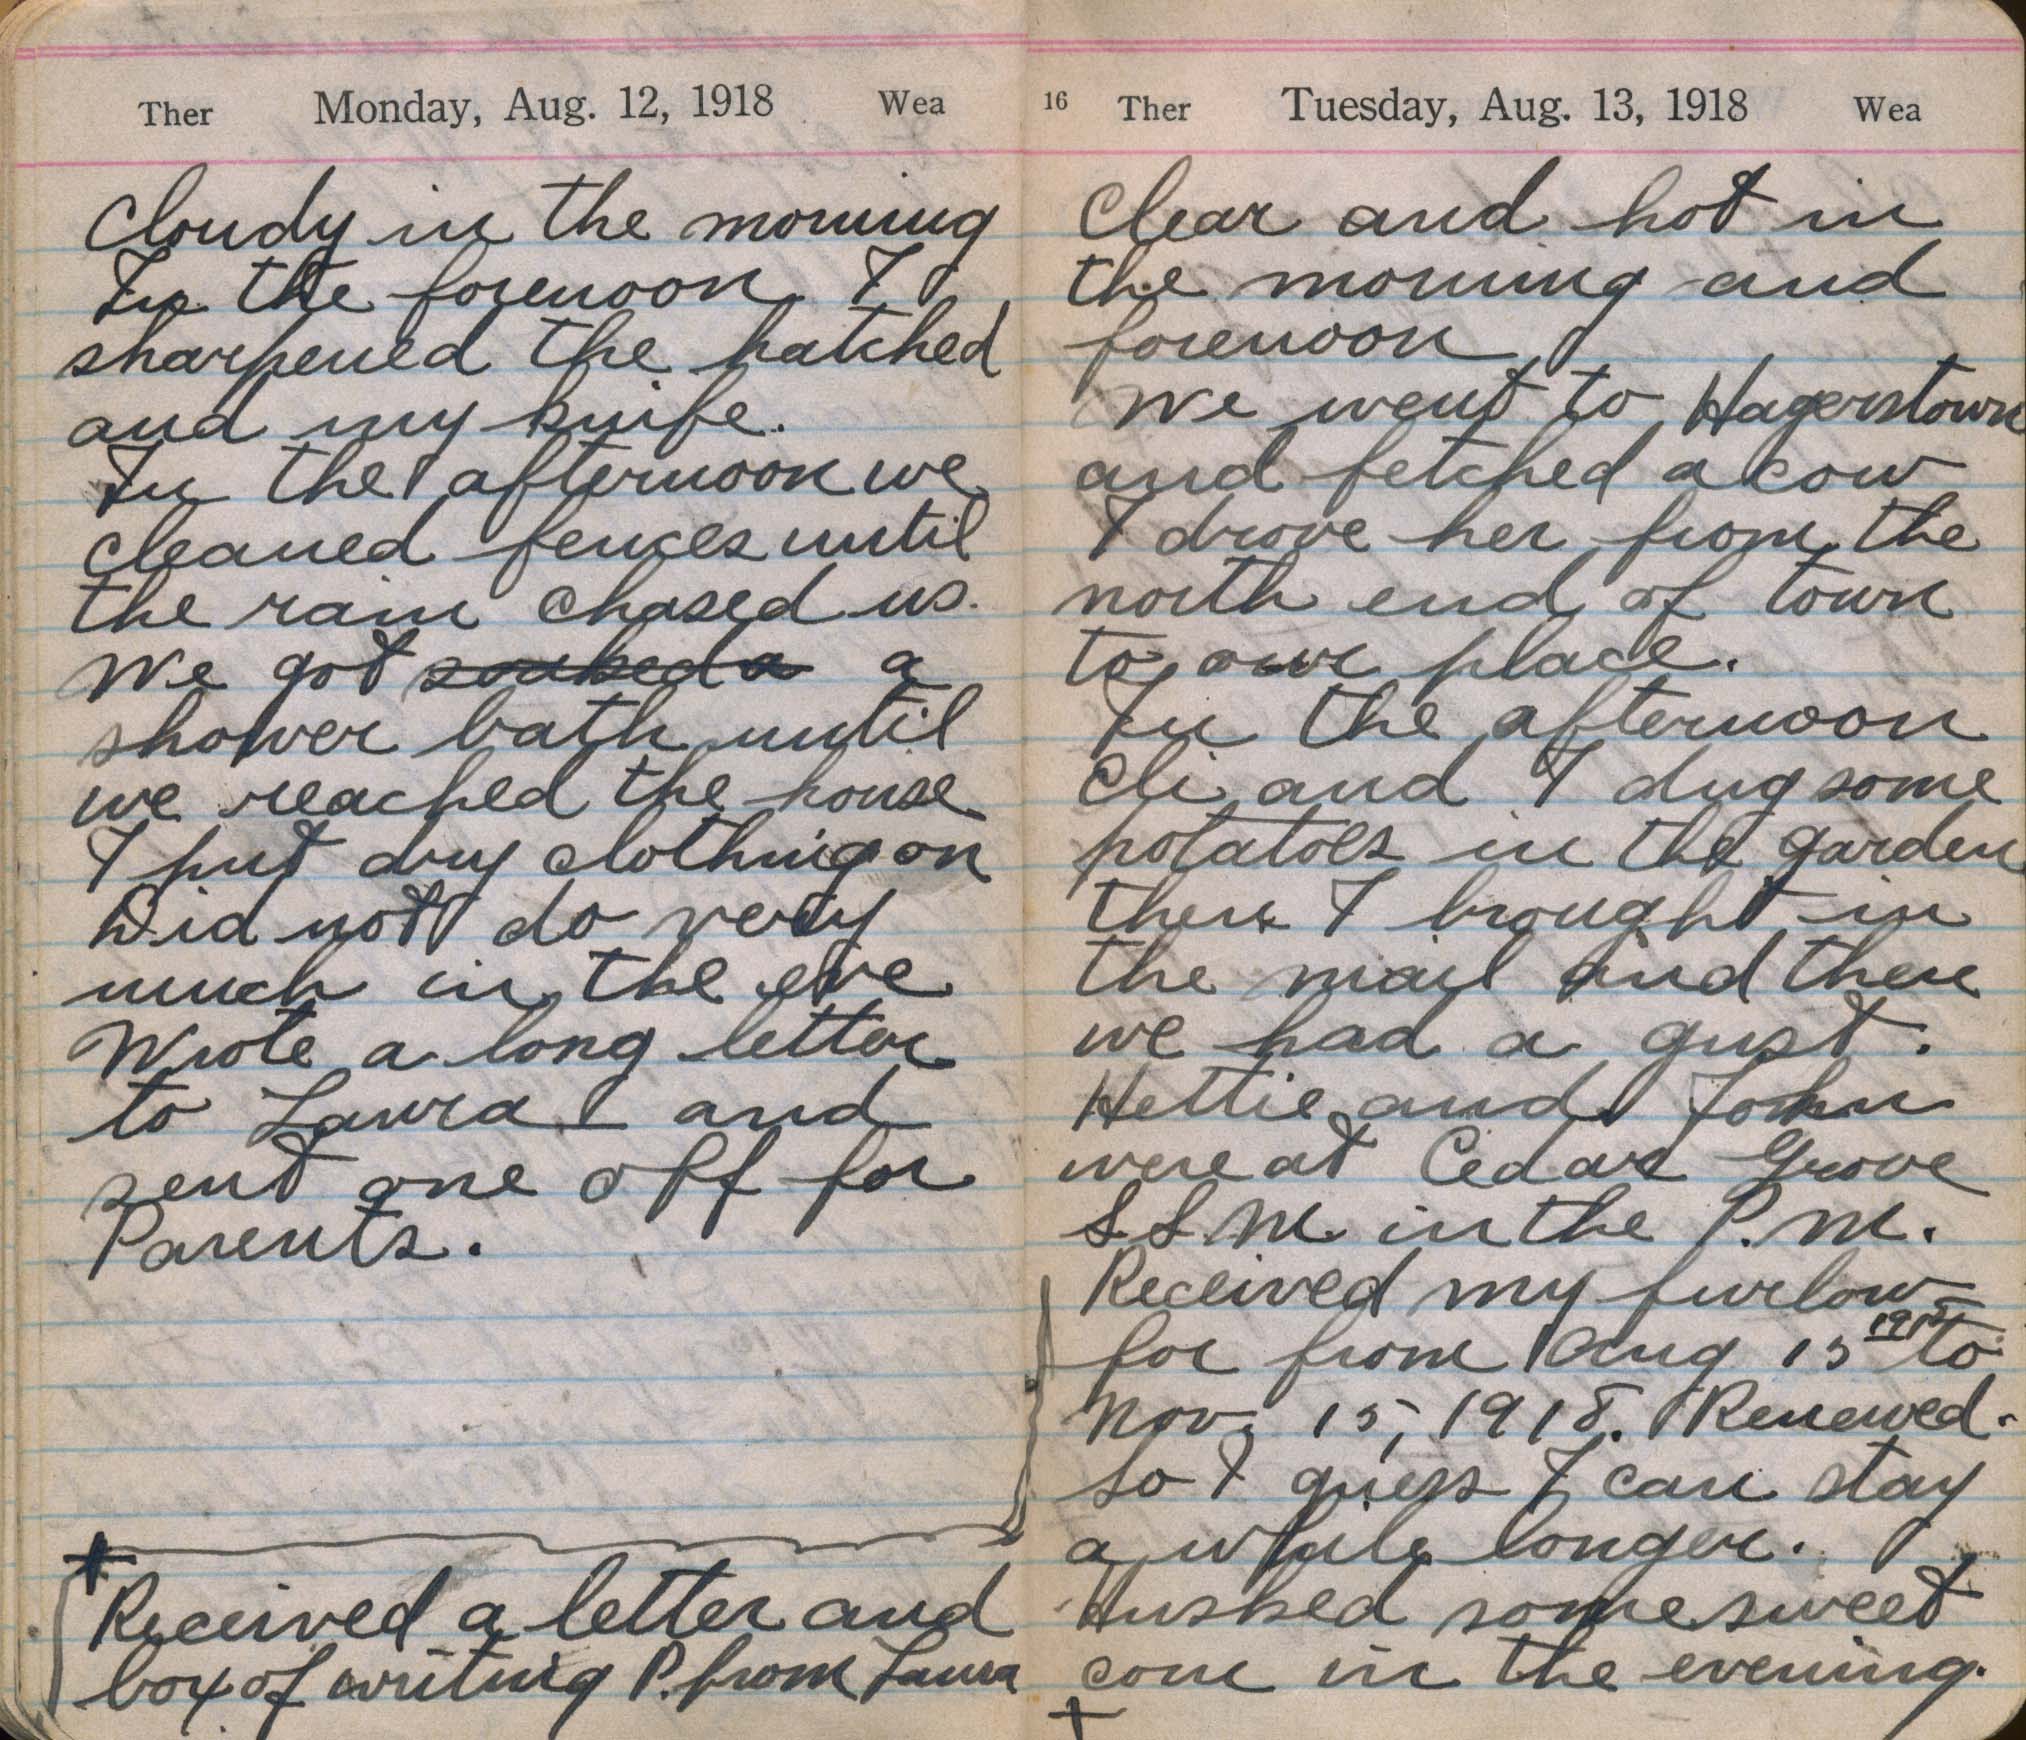 Ther Monday, Aug. 12, 1918 Wea
Cloudy in the morning
In the forenoon I
sharpened the hatched
and my knife.
In the afternoon we
cleaned fences until
the rain chased us.
We got soaked a a
shower bath until
we reached the house
I put dry clothing on
Did not do very
much in the eve
Wrote a long letter
to Laura I and
sent one off for
Parents.
+
Received a letter and
box of writing P. from Laura
16 Ther Tuesday, Aug. 13, 1918 Wea
Clear and hot in
the morning and
forenoon
We went to Hagerstown
and fetched a cow
I drove her from the
north end of town
to our place.
In the afternoon
Eli and I dug some
potatoes in the garden
then I brought in
the mail and then
we had a gust.
Hettie and John
were at Cedar Grove
S S M. in the P. M.
Received my furlow
for from Aug 15 1918 to
Nov. 15, 1918. Renewed.
so I guess I can stay
a while longer.
Husked some sweet
corn in the evening.
+